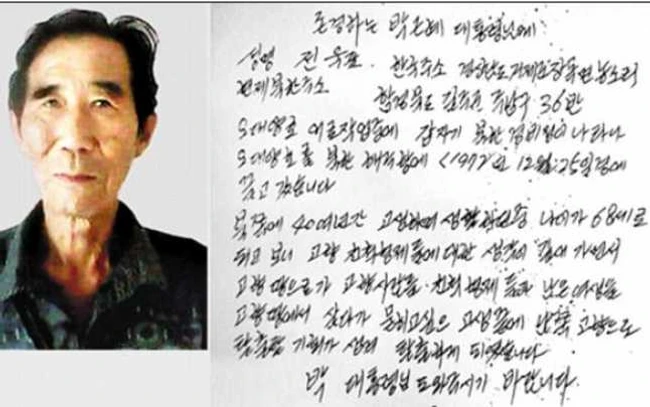 존경하는 박근혜 대통령님에
성명 전욱표. 한국주소 경상남도 거제군 장목면 농소리
현제북한주소 함경북도 길주군 주남구 36반
오대양호 어로작업중에 갑자기 북한 경비정이 나타나
오대양호를 북한 해주항에 <1972년 12월:25일경에
끌고 갔습니다
북쪽에 40여년간 고생하며 생활하던중 나이가 68세로
되고 보니 고향 친척형제들에 대한 생각이 깊어 가면서
고향땅으로가 고향사람들·친척 형제 들과 남은 여생을
고향땅에서 살다가 묻히고싶은 고생끝에 남쪽 고향으로
탈출할 기회가 생겨 탈출하게 되였습니다
박 대통령님 도와주시기 바랍니다.